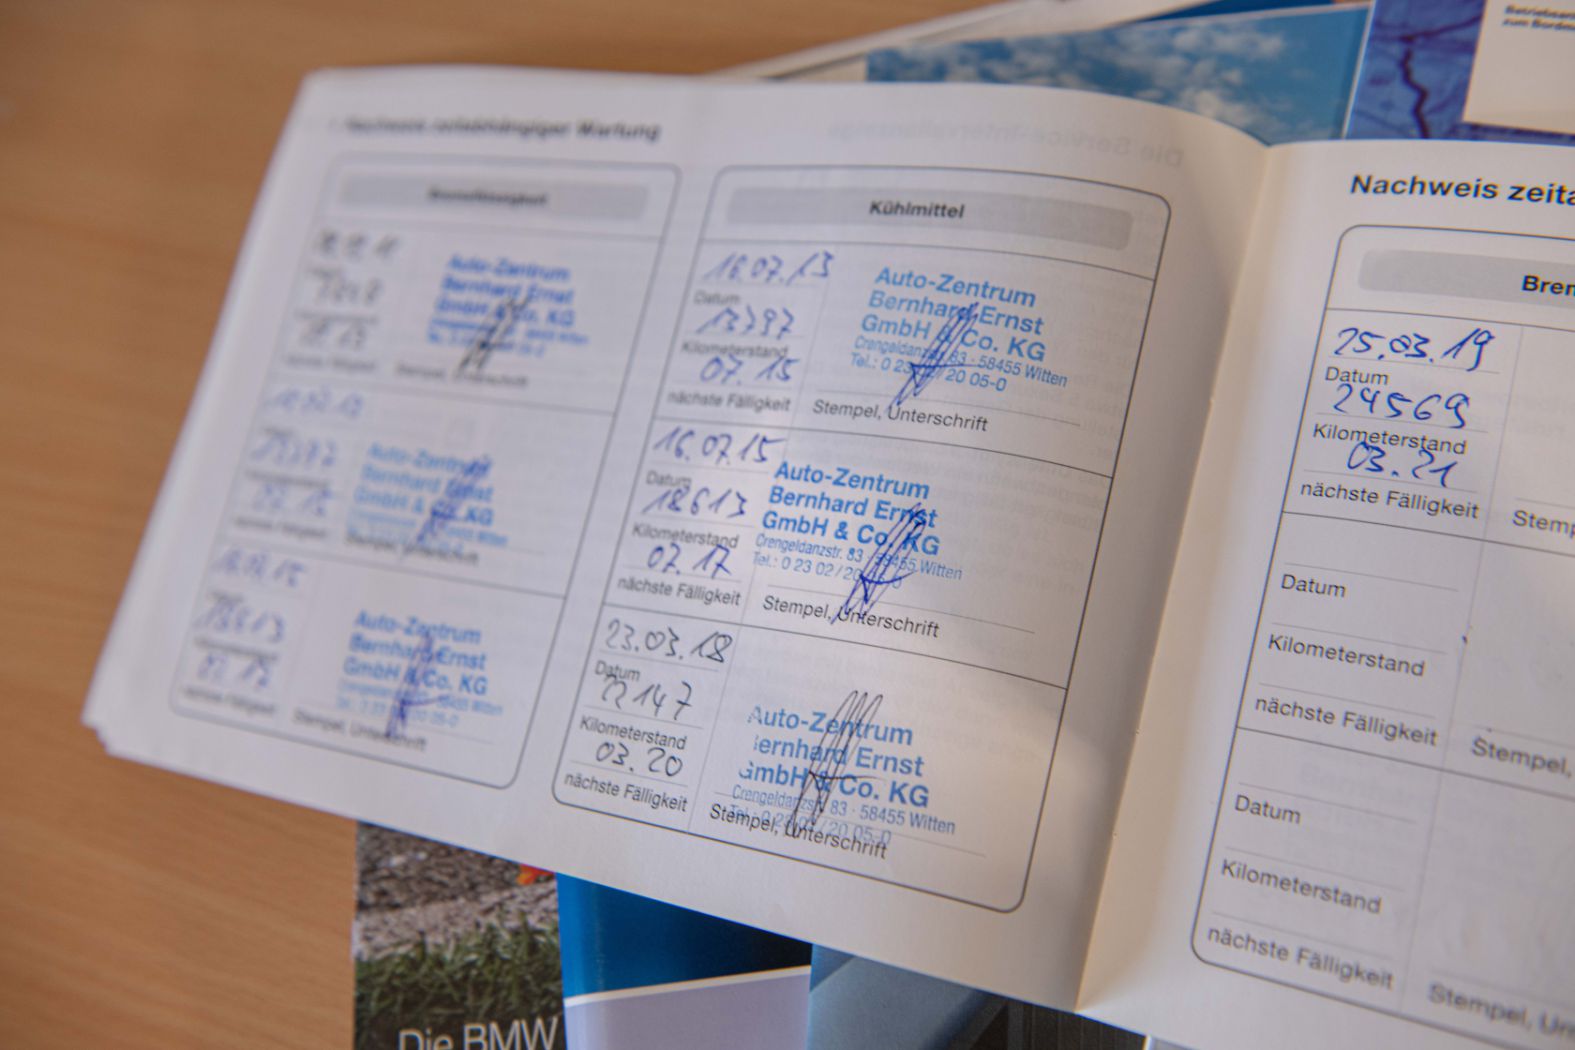 Betriebsan
zum Bordm
Nachweis zeitabhängiger Wartung
Bremsflüssigkeit
Auto-Zentrum
Bernhard Ernst
GmbH & Co. KG
Stempel, Unterschrift
nächste Fälligkeit
Auto-Zentrum
Bernhard Ernst
GmbH & Co. KG
Stempel, Unterschrift
nächste Fälligkeit
16.07.15
18613
07.17
Auto-Zentrum
Bernhard Ernst
GmbH & Co. KG
nächste Fälligkeit
Stempel, Unterschrift
Kühlmittel
16.07.13
Datum
13797
Kilometerstand
07.15
nächste Fälligkeit
Auto-Zentrum
Bernhard Ernst
GmbH & Co. KG
Crengeldanzstr. 83 · 58455 Witten
Tel.: 0 23 02 / 20 05-0
Stempel, Unterschrift
16.07.15
Datum
18613
Kilometerstand
07.17
nächste Fälligkeit
Auto-Zentrum
Bernhard Ernst
GmbH & Co. KG
Crengeldanzstr. 83 · 58455 Witten
Tel.: 0 23 02 / 20 05-0
Stempel, Unterschrift
23.03.18
Datum
22147
Kilometerstand
03.20
nächste Fälligkeit
Auto-Zentrum
Bernhard Ernst
GmbH & Co. KG
Crengeldanzstr. 83 · 58455 Witten
Tel.: 0 23 02 / 20 05-0
Stempel, Unterschrift
Nachweis zeita
Brem
25.03.19
Datum
24569
Kilometerstand
03.21
nächste Fälligkeit
Stemp
Datum
Kilometerstand
nächste Fälligkeit
Stempel,
Datum
Kilometerstand
nächste Fälligkeit
Stempel, Un
Die BMW